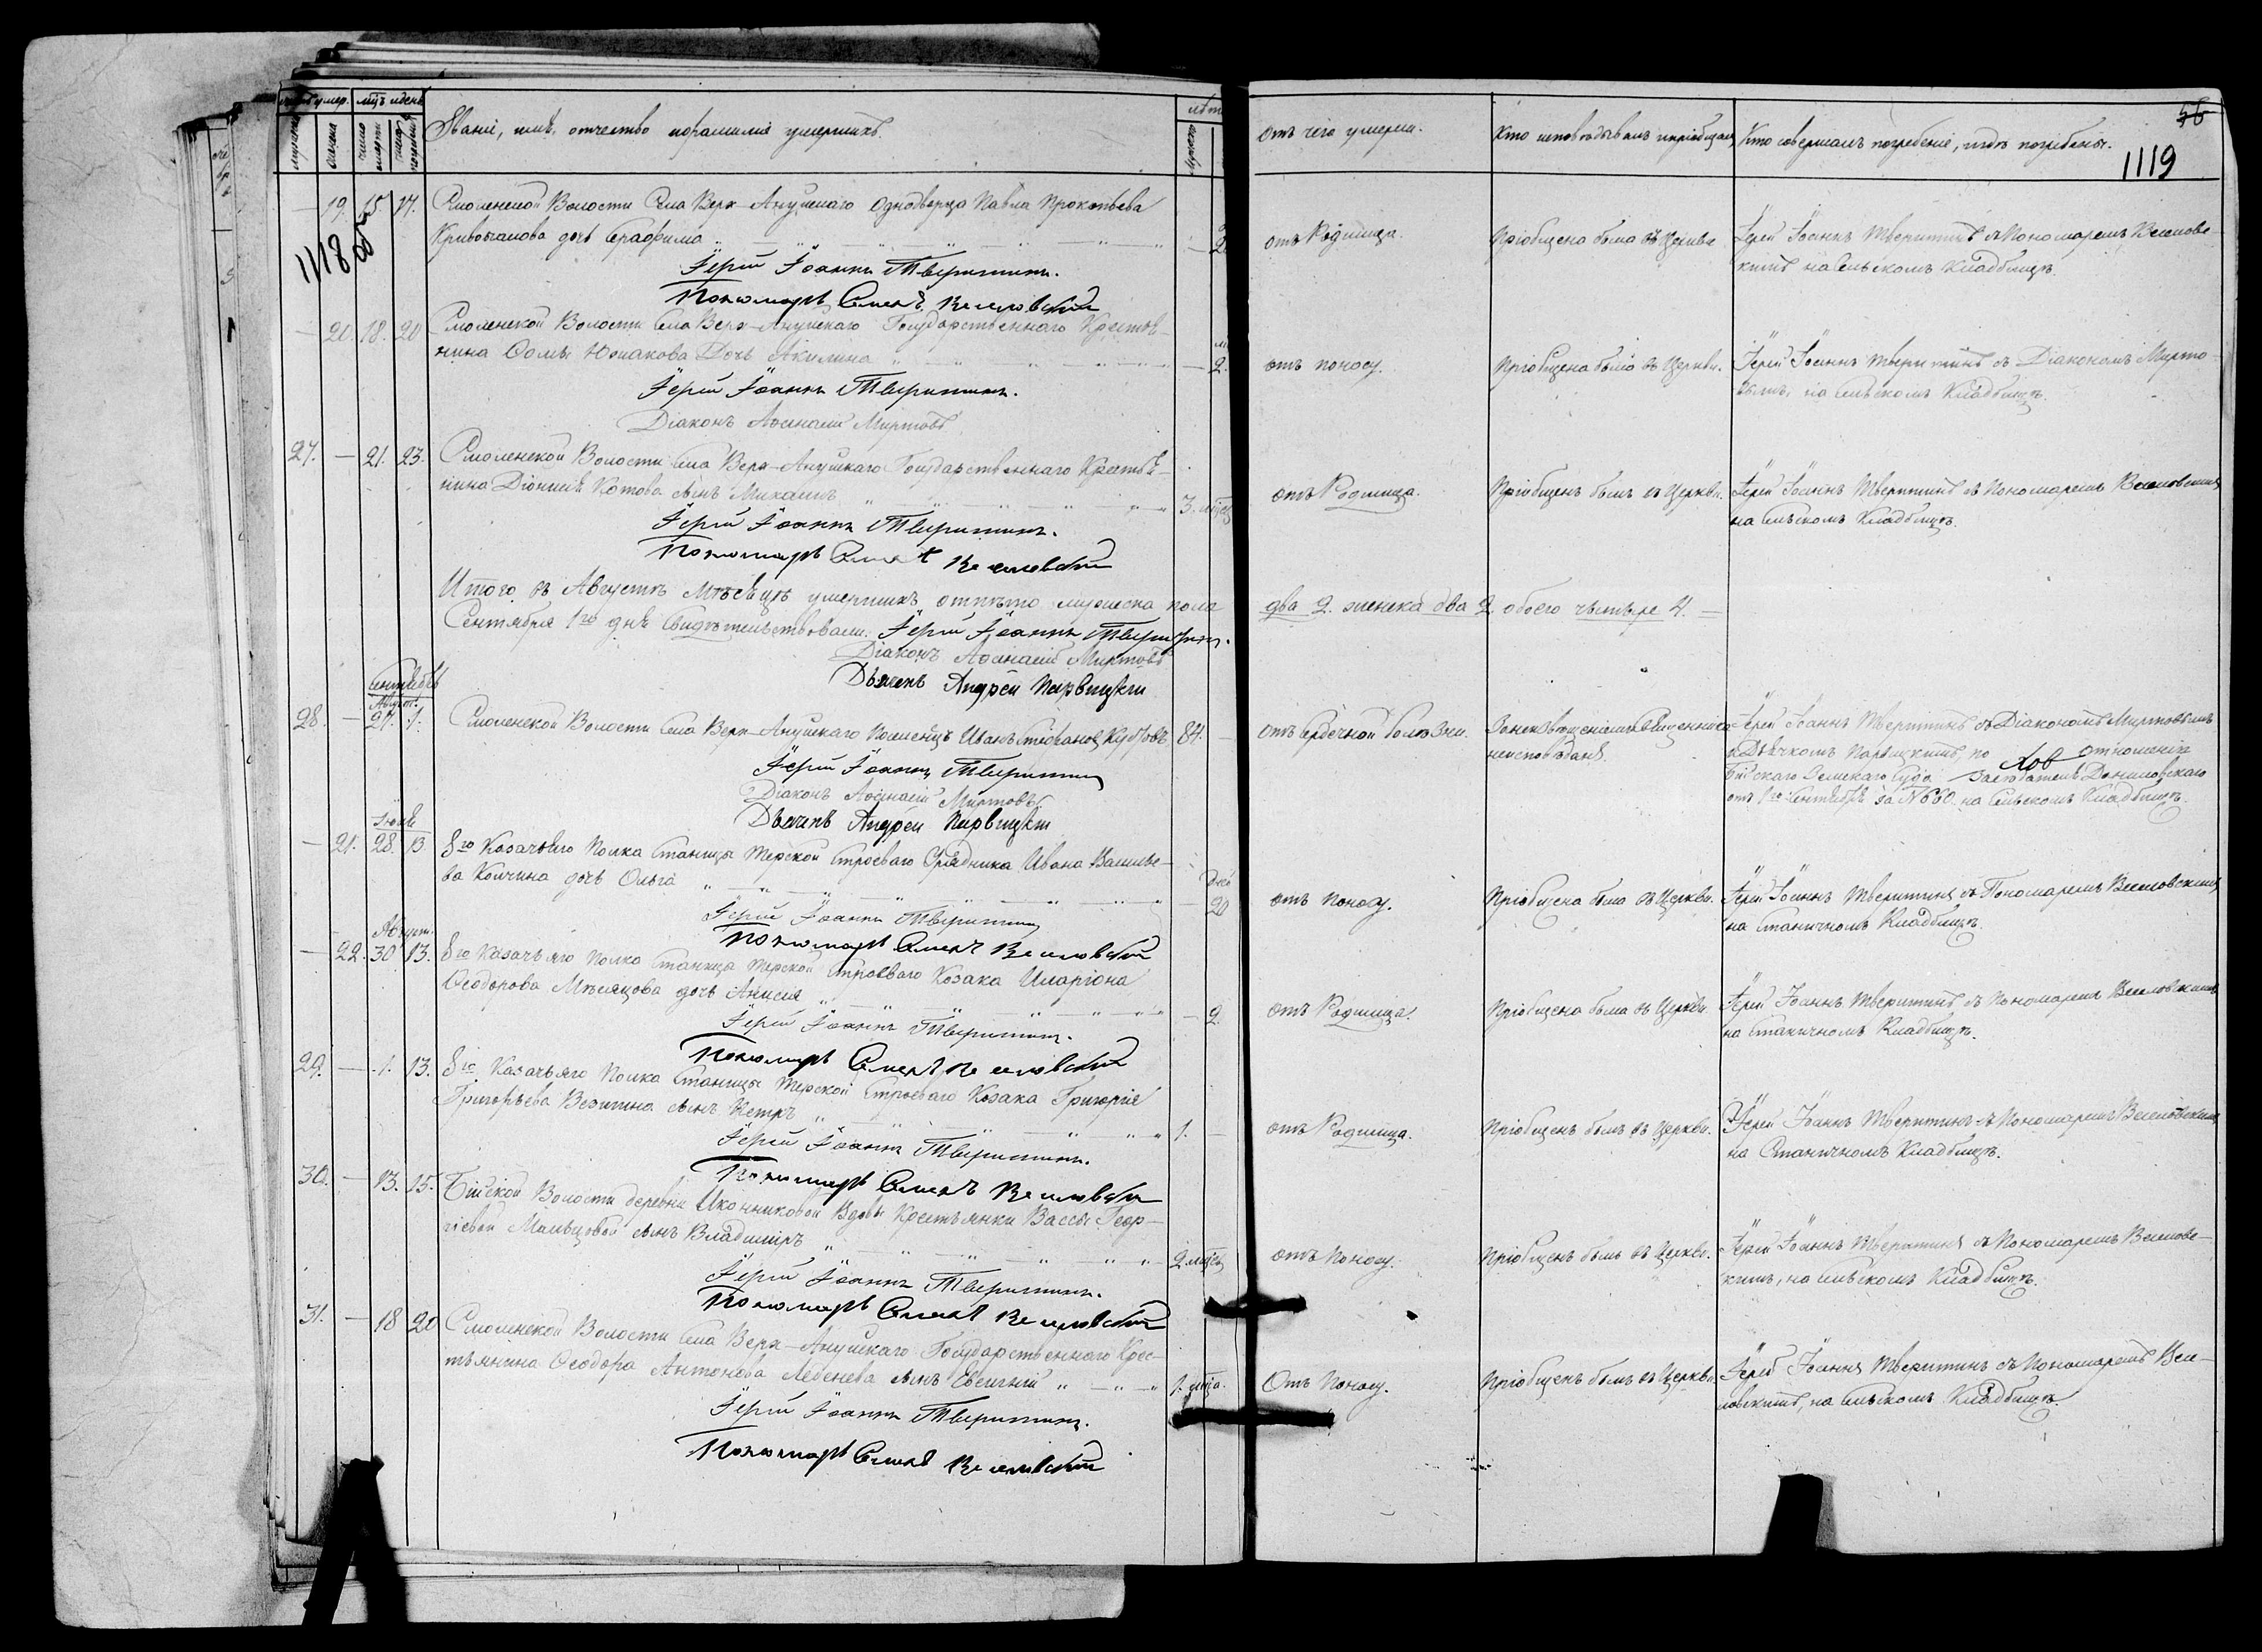 Званіе, имя, отчество и фамилія умершихъ.
лѣта
отъ чего умерли.
Кто исповѣдывалъ и пріобщалъ
Кто совершалъ погребеніе, и гдѣ погребены.
56
1119
1118
19. 15. 17. Смоленской Волости Села Верх-Ануйскаго Однодворца Павла Прокопьева
Кривочанова дочь Серафима
2
отъ Родимца.
Пріобщена была въ Церкви
Іерей Іоаннъ Тверитинъ съ Пономаремъ Веселовс-
кимъ на Сельскомъ Кладбищѣ.
Іерей Іоаннъ Тверитинъ.
Пономарь Семенъ Веселовскій
— 20. 18. 20 Смоленской Волости Села Верх-Ануйскаго Государственнаго Крестья-
нина Ѳомы Юшакова Дочь Акилина
— 2.
отъ поносу.
Пріобщена была въ Церкви.
Іерей Іоаннъ Тверитинъ съ Діакономъ Мирто-
вымъ, на Сельскомъ Кладбищѣ.
Іерей Іоаннъ Тверитинъ.
Діаконъ Аѳанасій Миртовъ
27. — 21. 23. Смоленской Волости Села Верх-Ануйскаго Государственнаго Крестья-
нина Діонисія Котова сынъ Михаилъ
3. мѣсяц
отъ Родимца.
Пріобщенъ былъ въ Церкви.
Іерей Іоаннъ Тверитинъ съ Пономаремъ Веселовскимъ
на Сельскомъ Кладбищѣ.
Іерей Іоаннъ Тверитинъ.
Пономарь Семенъ Веселовскій
Итого въ Августѣ мѣсяцѣ умершихъ отпѣто мужеска пола
два 2. женска два 2 обоего четыре 4. =
Сентября 1го дня Свидѣтельствовали: Іерей Іоаннъ Тверитинъ.
Діаконъ Аѳанасій Миртовъ
Дьячекъ Андрей Парвицкій
Сентябрь
Август.
28. — 27. 1. Смоленской Волости Села Верх-Ануйскаго Поселенецъ Иванъ Стефановъ Кубовъ
84. —
отъ Сердечной болѣзни.
За неизвѣщеніемъ Священника
неисповѣданъ.
Іерей Іоаннъ Тверитинъ съ Діакономъ Миртовымъ
и Дьячкомъ Парвицкимъ, по отношенію
Бійскаго Земскаго Суда Засѣдателя Даниловскаго
отъ 1го Сентября за №660. на Сельскомъ Кладбищѣ.
Іерей Іоаннъ Тверитинъ
Діаконъ Аѳанасій Миртовъ
Дьячекъ Андрей Парвицкій
Іюля
— 21. 28. 13. 8го Казачьяго Полка Станицы Терской Строеваго Урядника Ивана Василье-
ва Колчина дочь Ольга
дней
— 20
отъ Поносу.
Пріобщена была въ Церкви.
Іерей Іоаннъ Тверитинъ съ Пономаремъ Веселовскимъ
на Станичномъ Кладбищѣ.
Іерей Іоаннъ Тверитинъ
Пономарь Семенъ Веселовскій
Август.
— 22. 30 13. 8го Казачьяго Полка Станицы Терской Строеваго Козака Иларіона
Ѳеодорова Мѣсяцова дочь Анисія
— 2.
отъ Родимца.
Пріобщена была въ Церкви.
Іерей Іоаннъ Тверитинъ съ Пономаремъ Веселовскимъ
на Станичномъ Кладбищѣ.
Іерей Іоаннъ Тверитинъ.
Пономарь Семенъ Веселовскій
29. — 1. 13. 8го Казачьяго Полка Станицы Терской Строеваго Козака Григорія
Григорьева Везигина сынъ Петръ
1. —
отъ Родимца.
Пріобщенъ былъ въ Церкви.
Іерей Іоаннъ Тверитинъ съ Пономаремъ Веселовскимъ
на Станичномъ Кладбищѣ.
Іерей Іоаннъ Тверитинъ.
Пономарь Семенъ Веселовскій
30. — 13. 15. Бійской Волости деревни Иконниковой Вдовы Крестьянки Вассы Геор-
гіевой Мальцовой сынъ Владиміръ
2 мѣсяц
отъ Поносу.
Пріобщенъ былъ въ Церкви.
Іерей Іоаннъ Тверитинъ съ Пономаремъ Веселовс-
кимъ, на Сельскомъ Кладбищѣ.
Іерей Іоаннъ Тверитинъ.
Пономарь Семенъ Веселовскій
31. — 18 20 Смоленской Волости Села Верх-Ануйскаго Государственнаго Крес-
тьянина Ѳеодора Антонова Лебенева сынъ Евсигній
1. мѣца.
Отъ Поносу.
Пріобщенъ былъ въ Церкви.
Іерей Іоаннъ Тверитинъ съ Пономаремъ Весе-
ловскимъ, на Сельскомъ Кладбищѣ.
Іерей Іоаннъ Тверитинъ.
Пономарь Семенъ Веселовскій